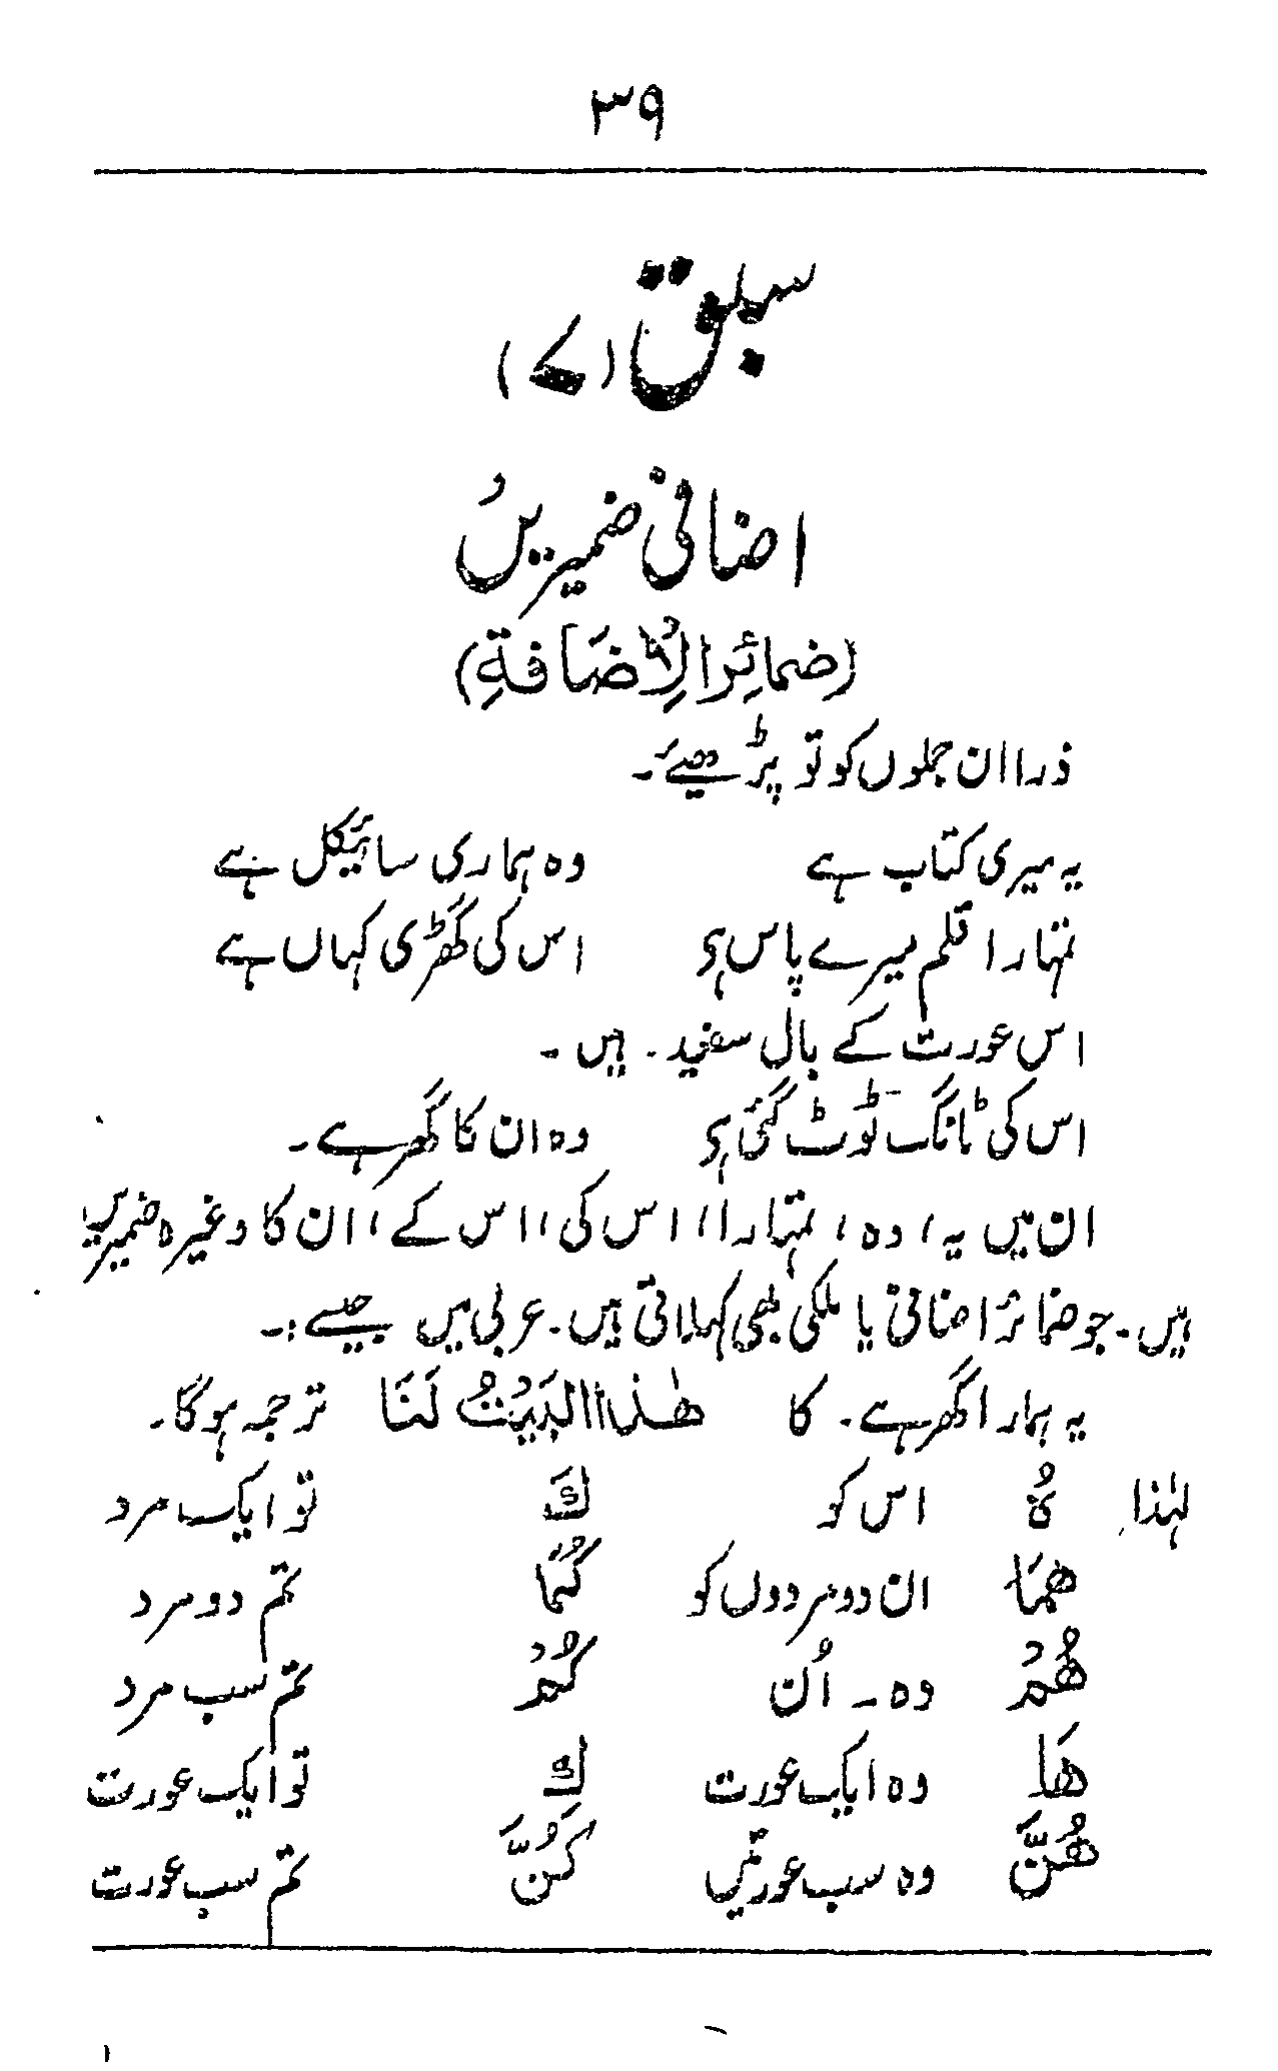 ۳۹
سبق (۷)
اضافی ضمیریں
(ضمائِر الْاِضَافةِ)
ذرا ان جملوں کو تو پڑھیئے۔
یہ میری کتاب ہے وہ ہماری سائیکل ہے
تمہارا قلم میرے پاس ہے اس کی گھڑی کہاں ہے
اس عورت کے بال سفید۔ ہیں۔
اس کی ٹانگ ٹوٹ گئی ہے وہ ان کا گھر ہے۔
ان میں یہ، وہ، تمہارا، اس کی، اس کے، ان کا وغیرہ ضمیریں
ہیں۔ جو ضمائر اضافی یا ملکی بھی کہلاتی ہیں۔ عربی میں جیسے:۔
یہ ہمارا گھر ہے۔ کا ھٰذا البَیْتُ لَنَا ترجمہ ہوگا۔
لہٰذا ہُ اس کو كَ تو ایک مرد
ھمَا ان دو مردوں کو کُمَا تم دو مرد
ھُمْ وہ ۔ اُن کُمْ تم سب مرد
ھَا وہ ایک عورت كِ تو ایک عورت
ھُنَّ وہ سب عورتیں کُنَّ تم سب عورت